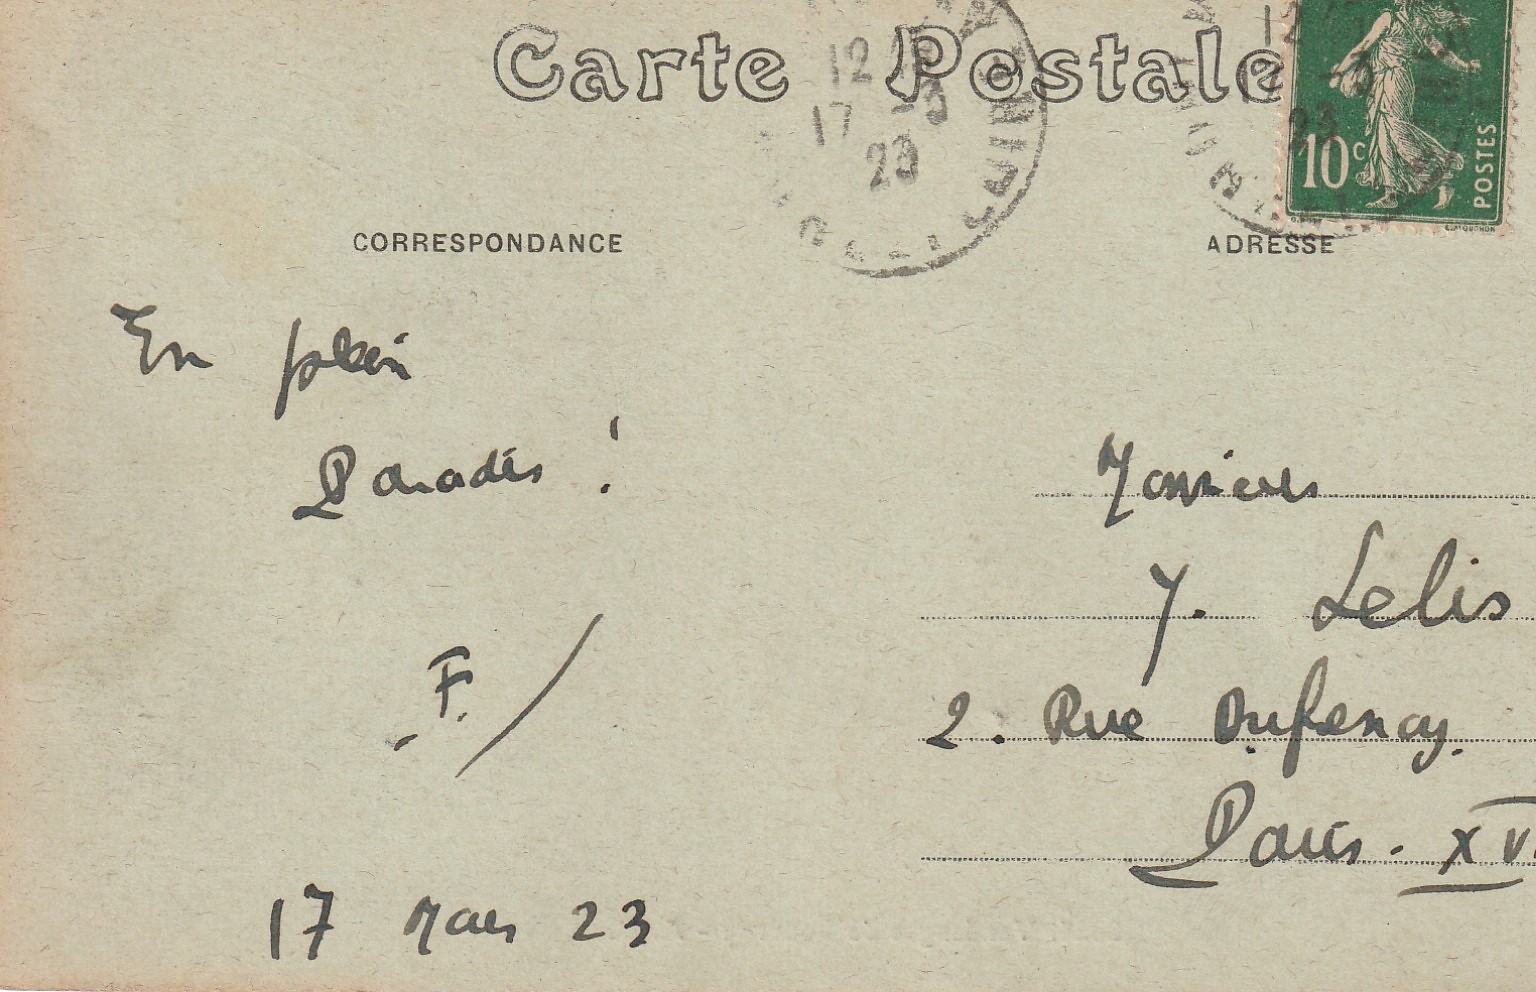 Carte Postale
12
17 -3
23
12
-3
23
10c
POSTES
CORRESPONDANCE
ADRESSE
En plein
Paradis !
F.
17 Mars 23
Monsieur
Y. Lelis
2. Rue Dufrenoy.
Paris. XV